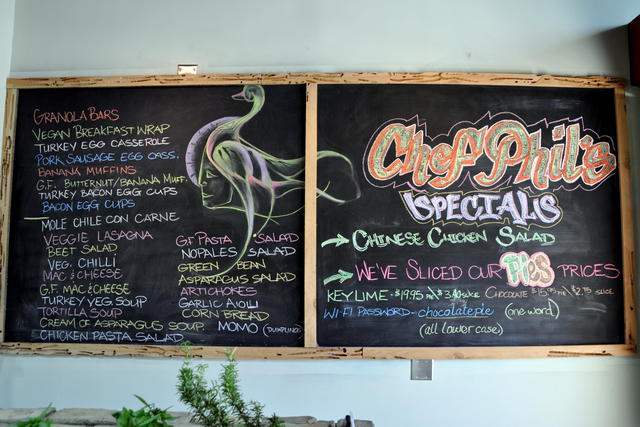 GRANOLA BARS
VEGAN BREAKFAST WRAP
TURKEY EGG CASSEROLE
PORK SAUSAGE EGG CASS.
BANANA MUFFINS
G.F. BUTTERNUT/BANANA MUFF.
TURKEY BACON EGG CUPS
BACON EGG CUPS
MOLE CHILE CON CARNE
VEGGIE LASAGNA
BEET SALAD
VEG. CHILLI
MAC & CHEESE
G.F. MAC & CHEESE
TURKEY VEG SOUP
TORTILLA SOUP
CREAM OF ASPARAGUS SOUP
CHICKEN PASTA SALAD
G.F PASTA SALAD
NOPALES SALAD
GREEN BEAN
ASPARAGUS SALAD
ARTICHOKES
GARLIC AIOLI
CORN BREAD
MOMO (DUMPLINGS)
Chef Phil's
SPECIALS
CHINESE CHICKEN SALAD
WE'VE SLICED OUR PIES PRICES
KEY LIME - $19.95 $3.40 SLICE CHOCOLATE $15.95 $2.75 SLICE
WI-FI PASSWORD - chocolatepie (one word)
(all lower case)